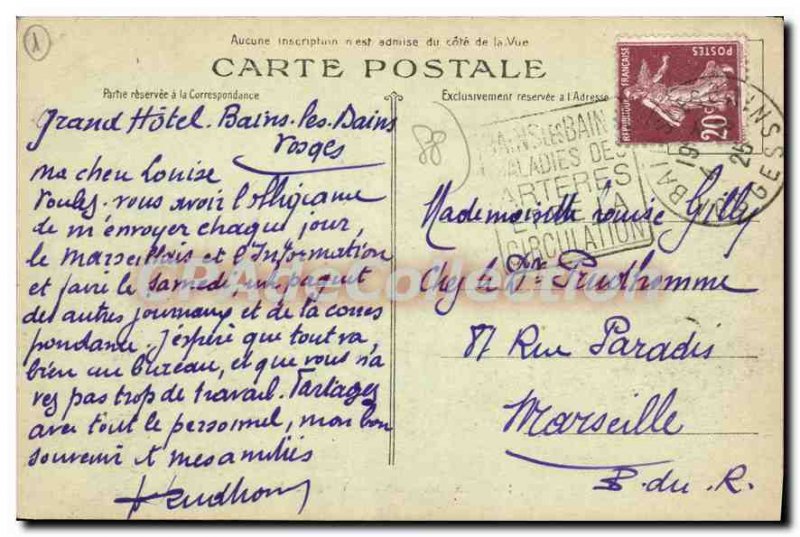 1
Aucune inscription n'est admise du côté de la Vue
CARTE POSTALE
Partie réservée à la Correspondance
Exclusivement réservée à l'Adresse
REPUBLIQUE FRANÇAISE
POSTES
20c
BAINS LES BAIN
MALADIES DES
ARTERES
ET DE LA
CIRCULATION
19
4
26
VOSGES
Grand Hôtel. Bains-les-Bains
Vosges
Ma chere Louise
Voulez-vous avoir l'obligeance
de m'envoyer chaque jour,
le Marseillais et l'Information
et faire le samedi un paquet
des autres journaux et de la corres
pondance. J'espère que tout va
bien au bureau, et que vous n'a
vez pas trop de travail. Partagez
avec tout le personnel, mon bon
souvenir et mes amitiés
Prudhom
88
Mademoiselle Louise Gilly
Chez Prudhomme
87 Rue Paradis
Marseille
B. du. R.
CPAdecollection